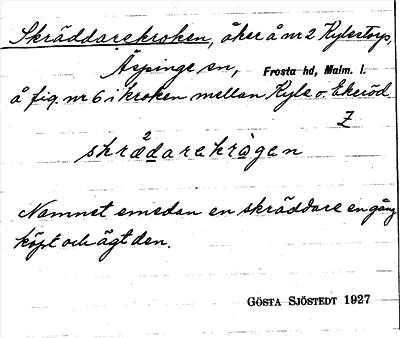 Skräddarekroken, åker å nr 2 Kylestorp,
Äspinge sn, Frosta hd, Malm. l.
å fig. nr 6 i kroken mellan Kyle o. Ekeröd.
Z
2
skrædarekrògen
Namnet emedan en skräddare en gång
köpt och ägt den.
GÖSTA SJÖSTEDT 1927